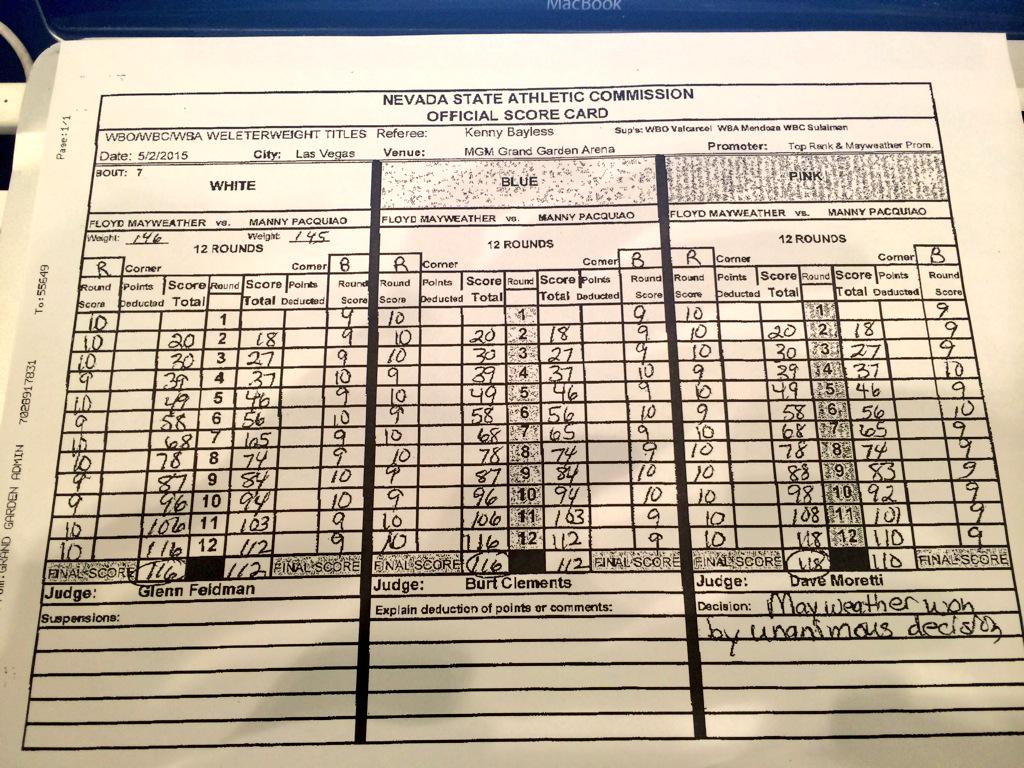 MacBook
NEVADA STATE ATHLETIC COMMISSION
OFFICIAL SCORE CARD
WBO/WBC/WBA WELETERWEIGHT TITLES Referee: Kenny Bayless Sup's: WBO Valcarcel WBA Mendoza WBC Sulaiman
Date: 5/2/2015 City: Las Vegas Venue: MGM Grand Garden Arena Promoter: Top Rank & Mayweather Prom.
BOUT: 7
WHITE BLUE PINK
FLOYD MAYWEATHER vs. MANNY PACQUIAO FLOYD MAYWEATHER vs. MANNY PACQUIAO FLOYD MAYWEATHER vs. MANNY PACQUIAO
Weight: 146 Weight: 145
12 ROUNDS 12 ROUNDS 12 ROUNDS
R Corner Corner B R Corner Corner B R Corner Corner B
Round Points Score Round Score Points Round Round Points Score Round Score Points Round Round Points Score Round Score Points Round
Score Deducted Total Total Deducted Score Score Deducted Total Total Deducted Score Score Deducted Total Total Deducted Score
10 1 9 10 1 9 10 1 9
10 20 2 18 9 10 20 2 18 9 10 20 2 18 9
10 30 3 27 9 10 30 3 27 9 10 30 3 27 9
9 39 4 37 10 9 39 4 37 10 9 39 4 37 10
10 49 5 46 9 10 49 5 46 9 10 49 5 46 9
9 58 6 56 10 9 58 6 56 10 9 58 6 56 10
10 68 7 65 9 10 68 7 65 9 10 68 7 65 9
10 78 8 74 9 10 78 8 74 9 10 78 8 74 9
9 87 9 84 10 9 87 9 84 10 10 88 9 83 9
9 96 10 94 10 9 96 10 94 10 10 98 10 92 9
10 106 11 103 9 10 106 11 103 9 10 108 11 101 9
10 116 12 112 9 10 116 12 112 9 10 118 12 110 9
FINAL SCORE 116 112 FINAL SCORE FINAL SCORE 116 112 FINAL SCORE FINAL SCORE 118 110 FINAL SCORE
Judge: Glenn Feldman Judge: Burt Clements Judge: Dave Moretti
Suspensions: Explain deduction of points or comments: Decision: Mayweather won
by unanimous decision
Page:1/1
To:55649
7028917831
GRAND GARDEN ADMIN